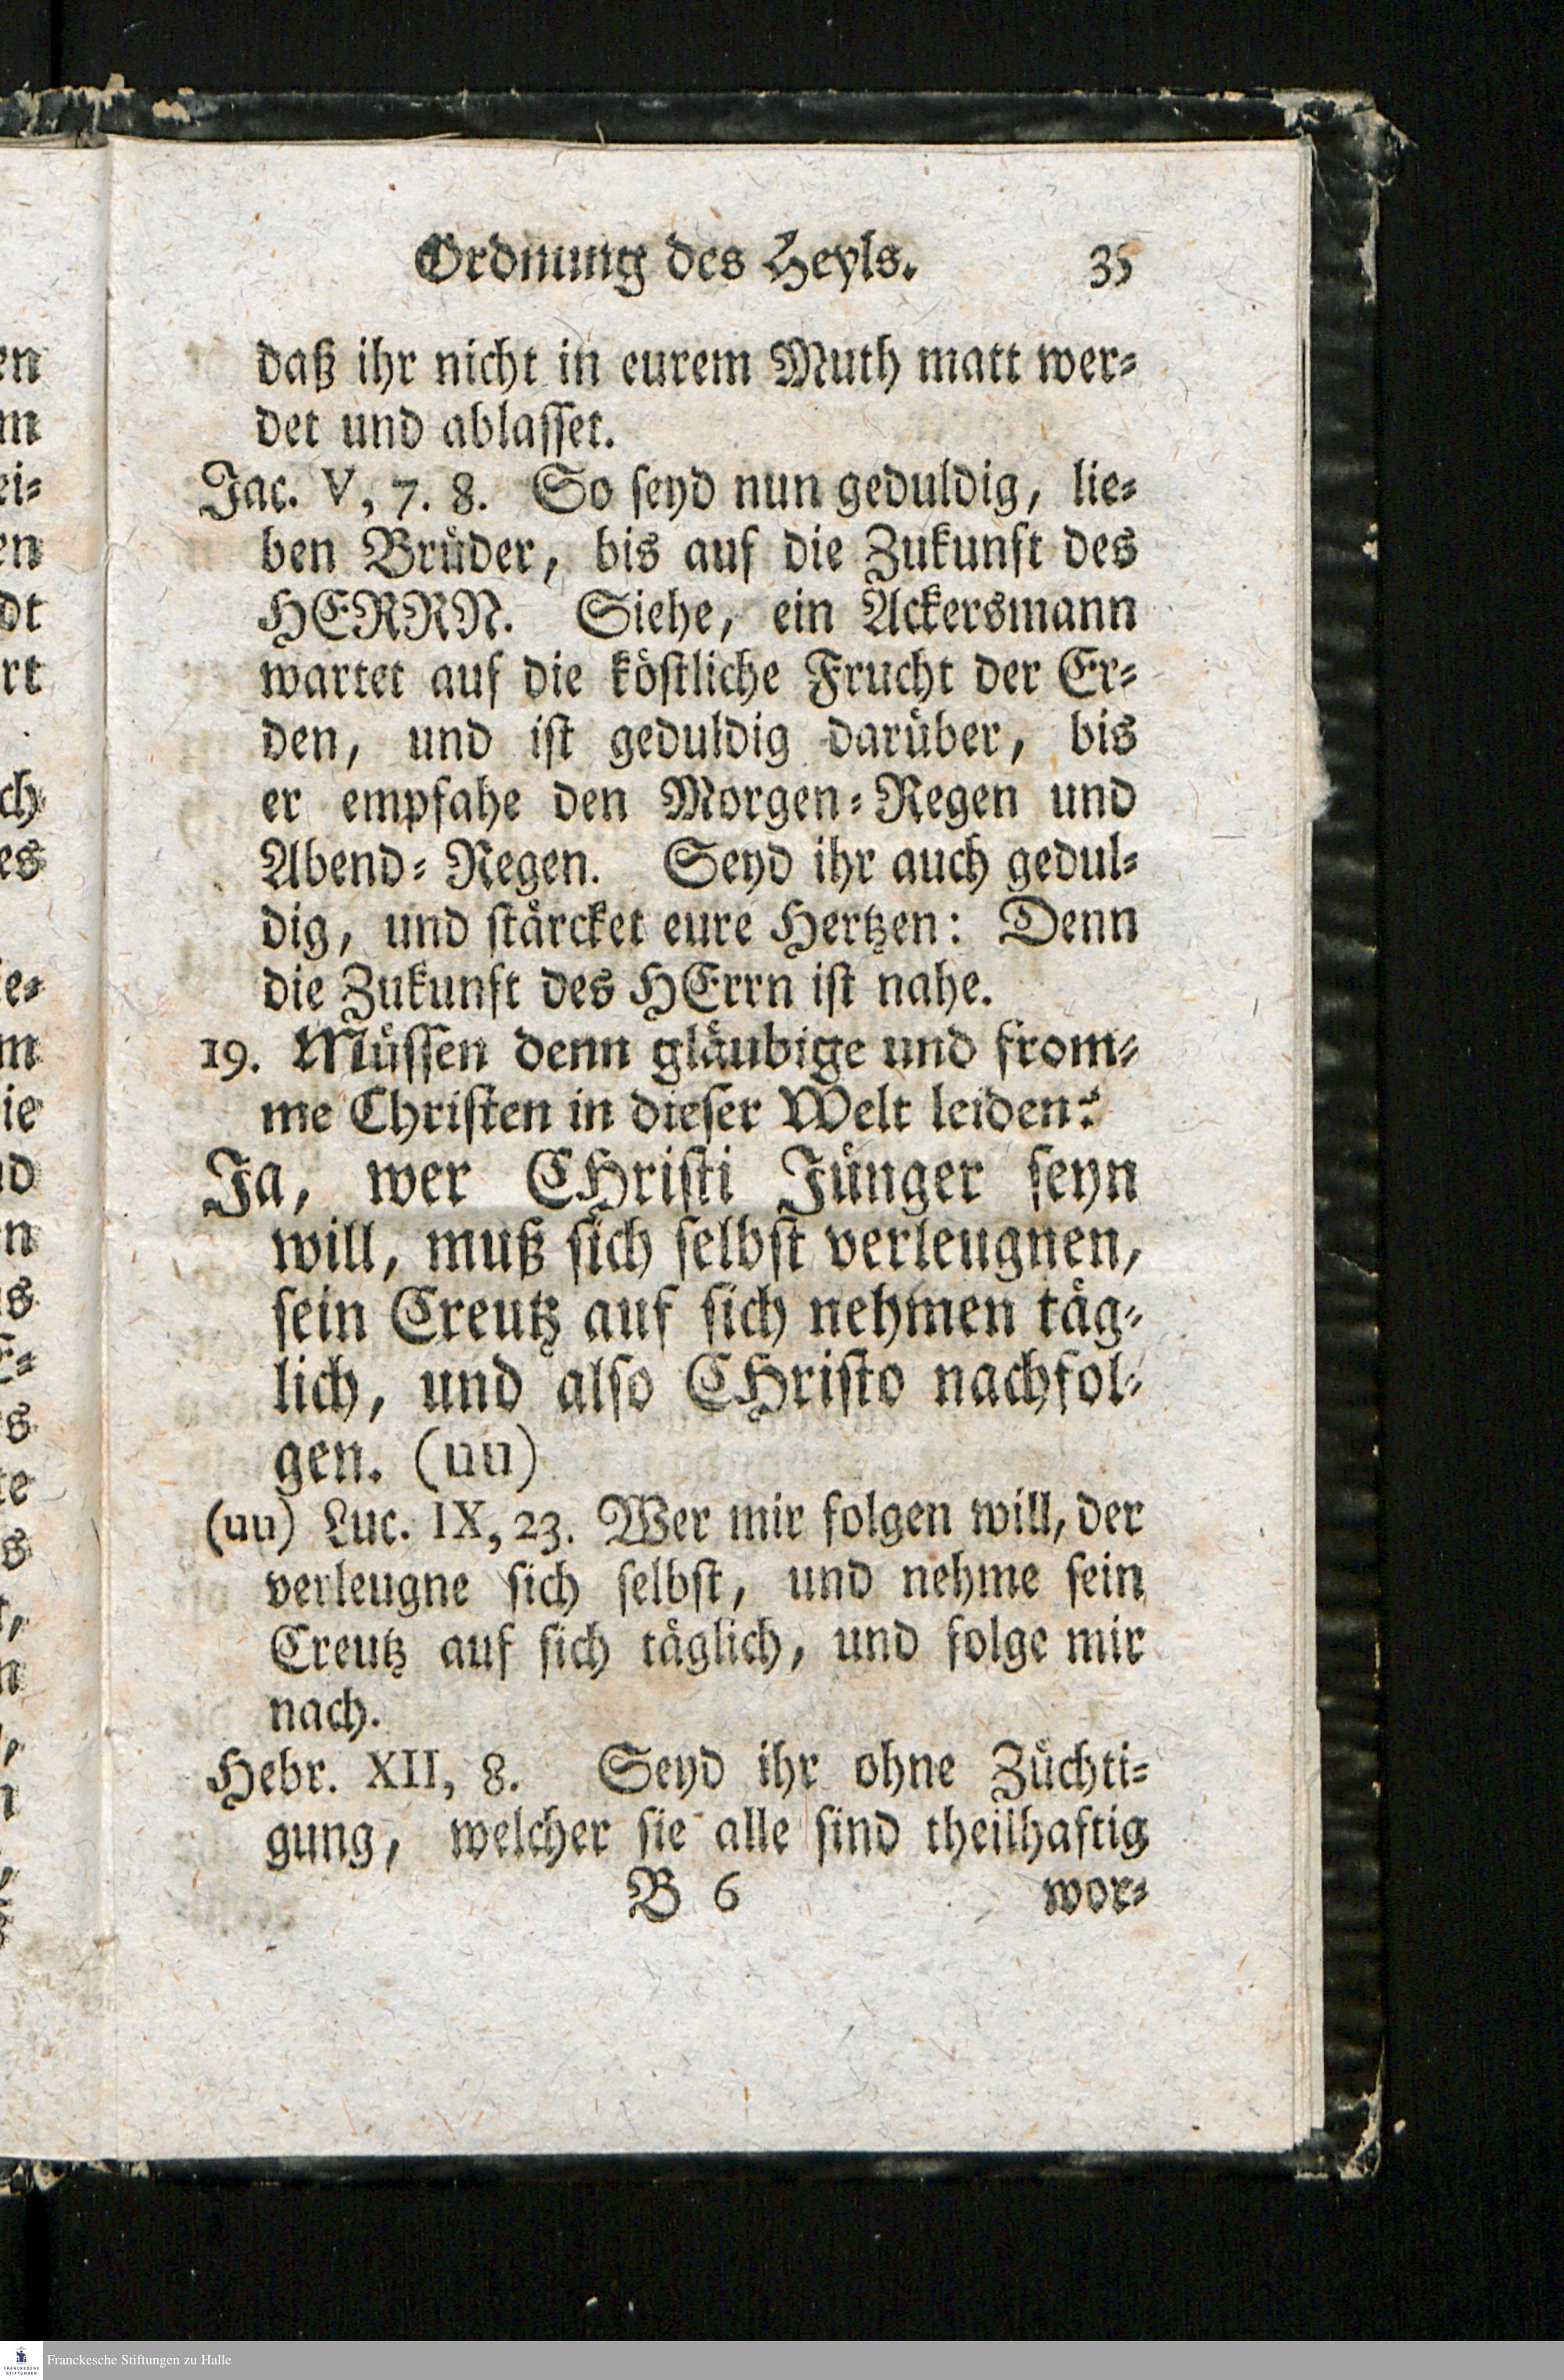 Ordnung des Heyls. 35
daß ihr nicht in eurem Muth matt wer⸗
det und ablaſſet.
Jac. V, 7. 8. So ſeyd nun geduldig, lie⸗
ben Bruͤder, bis auf die Zukunft des
HERRN. Siehe, ein Ackersmann
wartet auf die koͤſtliche Frucht der Er⸗
den, und iſt geduldig daruͤber, bis
er empfahe den Morgen⸗Regen und
Abend⸗Regen. Seyd ihr auch gedul⸗
dig, und ſtaͤrcket eure Hertzen: Denn
die Zukunft des HErrn iſt nahe.
19. Muͤſſen denn glaͤubige und from⸗
me Chriſten in dieſer Welt leiden?
Ja, wer CHriſti Juͤnger ſeyn
will, muß ſich ſelbſt verleugnen,
ſein Creutz auf ſich nehmen taͤg⸗
lich, und alſo CHriſto nachfol⸗
gen. (uu)
(uu) Luc. IX, 23. Wer mir folgen will, der
verleugne ſich ſelbſt, und nehme ſein
Creutz auf ſich taͤglich, und folge mir
nach.
Hebr. XII, 8. Seyd ihr ohne Zuͤchti⸗
gung, welcher ſie alle ſind theilhaftig
B 6 wor⸗
Franckesche Stiftungen zu Halle